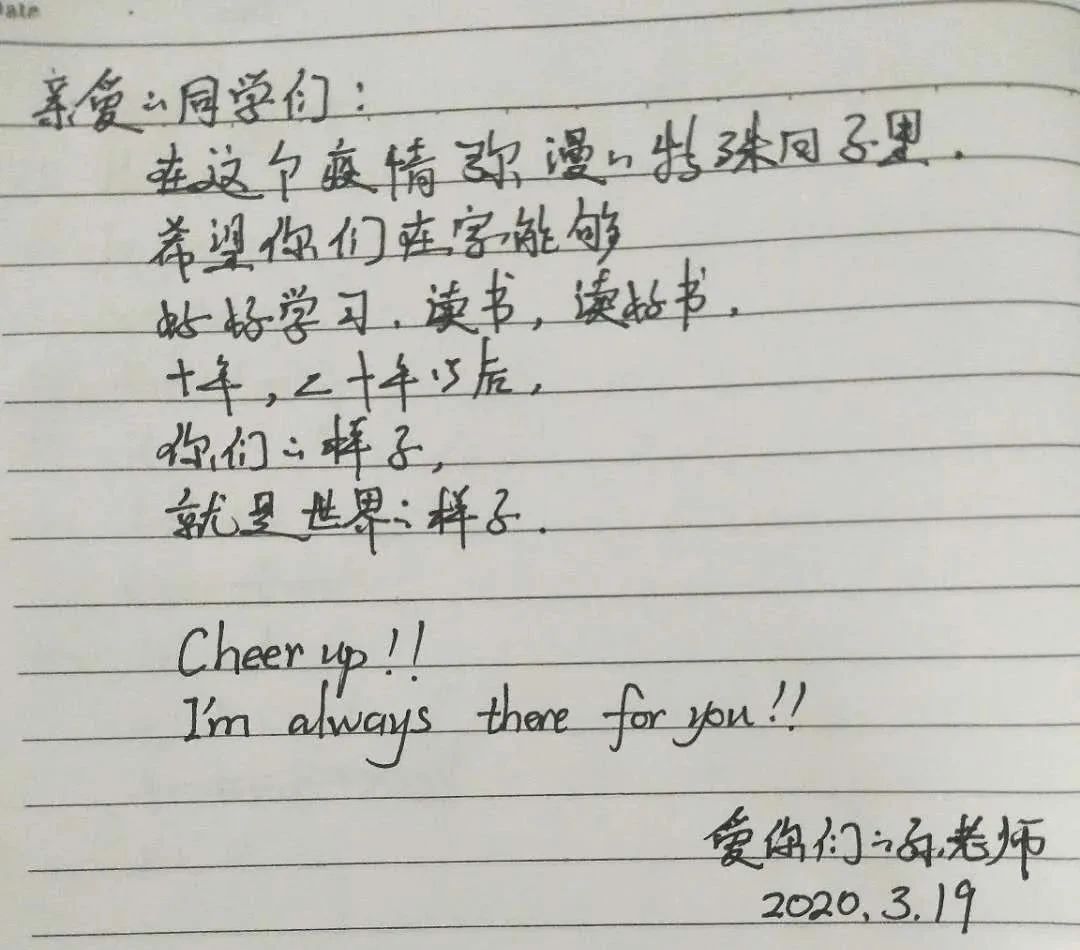 Date
亲爱的同学们：
在这个疫情弥漫的特殊日子里.
希望你们在家能够
好好学习.读书,读好书.
十年,二十年以后,
你们的样子,
就是世界的样子.
Cheer up!!
I'm always there for you!!
爱你们的孙老师
2020.3.19